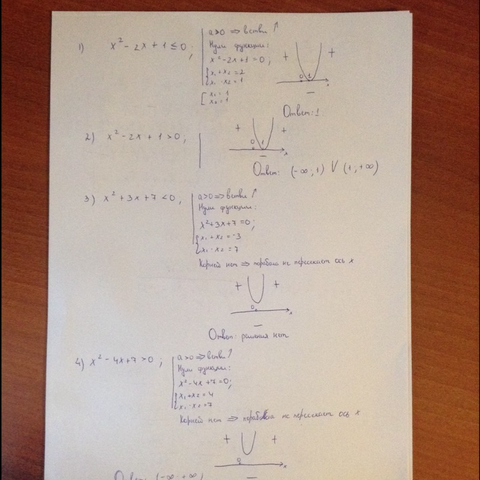 1) x² - 2x + 1 ≤ 0;
a>0 ⇒ ветви ↑
Нули функции:
x² - 2x + 1 = 0;
x₁ + x₂ = 2
x₁ · x₂ = 1
x₁ = 1
x₂ = 1
+ +
0 1 x
−
Ответ: 1
2) x² - 2x + 1 > 0;
+ +
0 1 x
−
Ответ: (-∞; 1) V (1, +∞)
3) x² + 3x + 7 < 0,
a>0 ⇒ ветви ↑
Нули функции:
x² + 3x + 7 = 0;
x₁ + x₂ = -3
x₁ · x₂ = 7
Корней нет ⇒ парабола не пересекает ось x
+ +
0 x
−
Ответ: решения нет
4) x² - 4x + 7 > 0;
a>0 ⇒ ветви ↑
Нули функции:
x² - 4x + 7 = 0;
x₁ + x₂ = 4
x₁ · x₂ = 7
Корней нет ⇒ парабола не пересекает ось x
+ +
0 x
−
Ответ: (-∞; +∞)